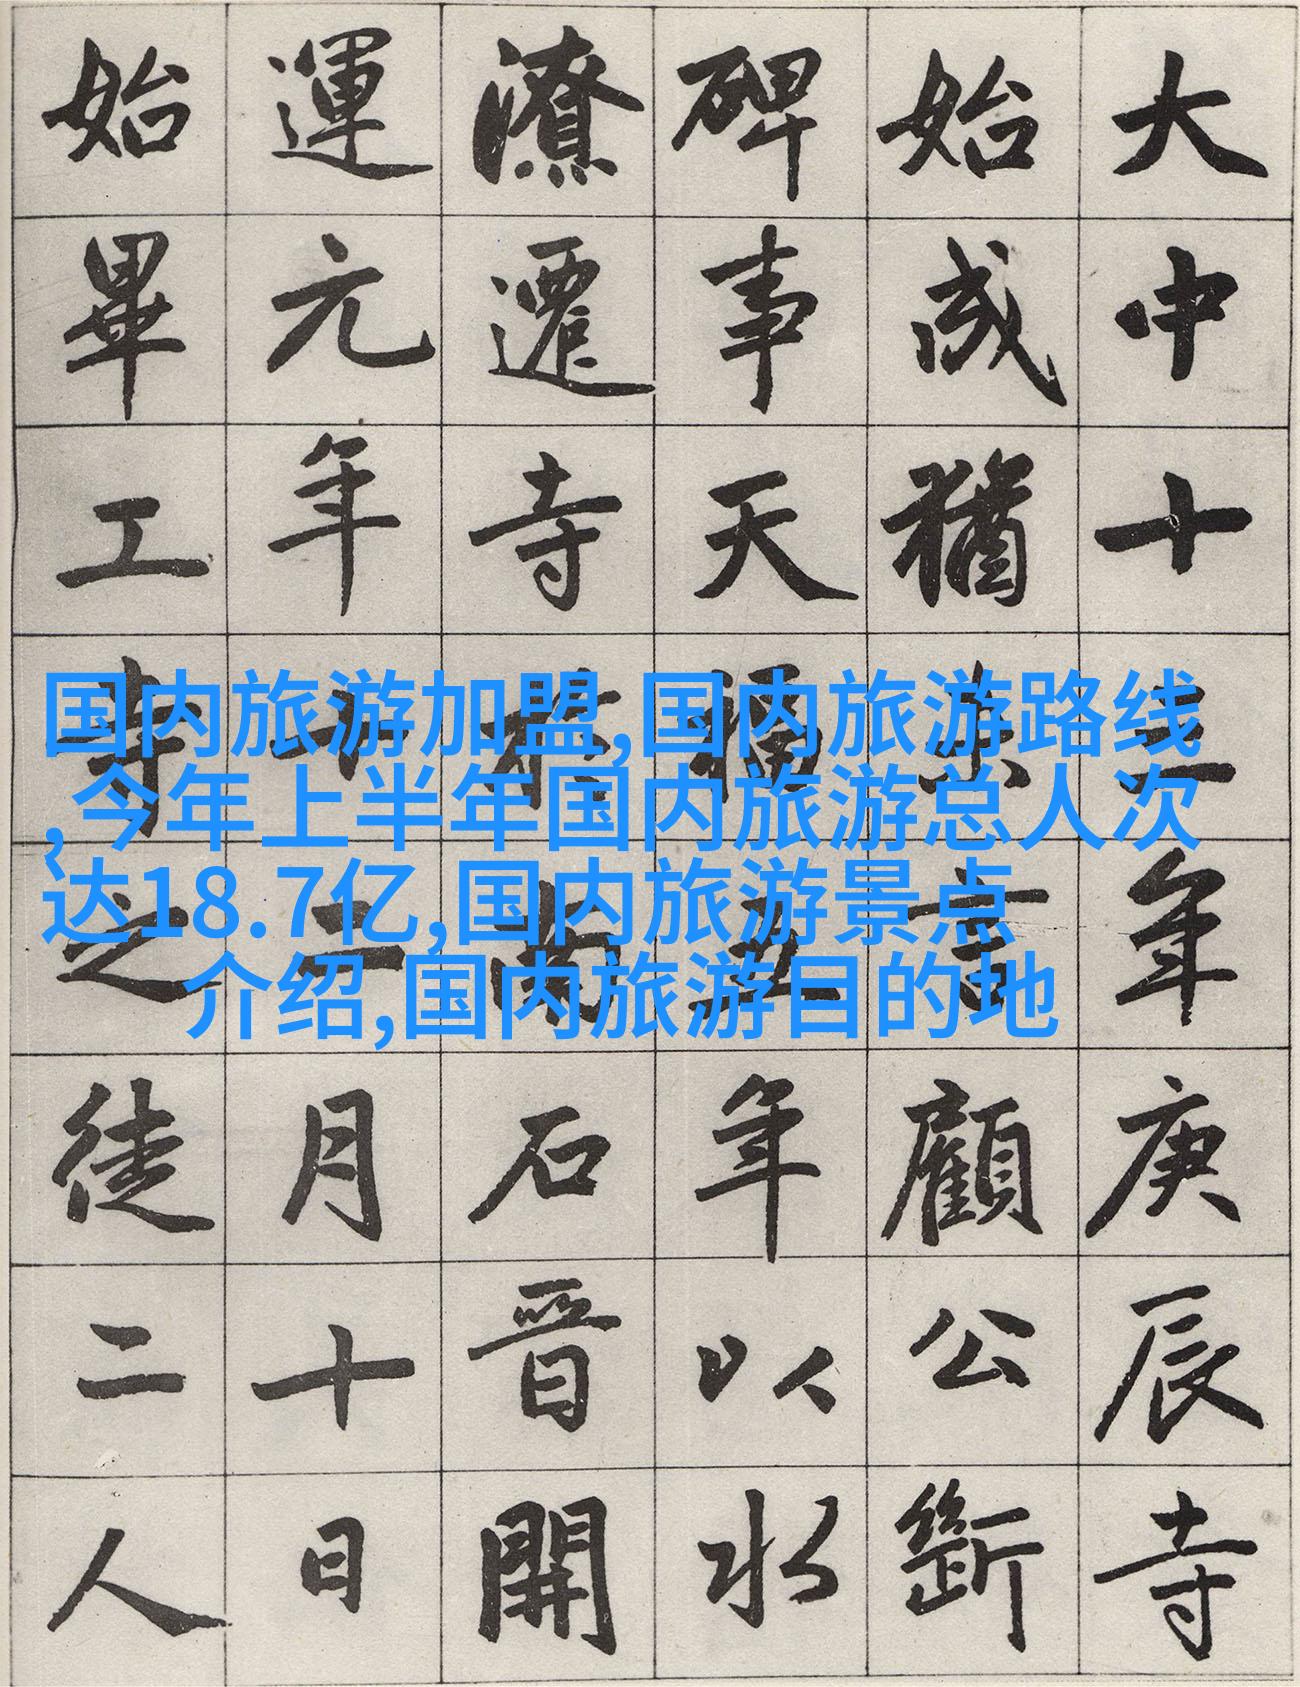 大中十年庚辰寺
始成猶言顧公斷
碑事天福五年以水
潦遷寺於南石晉開
運元年十二月十日
始畢工寺之徒二人
国内旅游加盟,国内旅游路线
,今年上半年国内旅游总人次
达18.7亿,国内旅游景点
介绍,国内旅游目的地